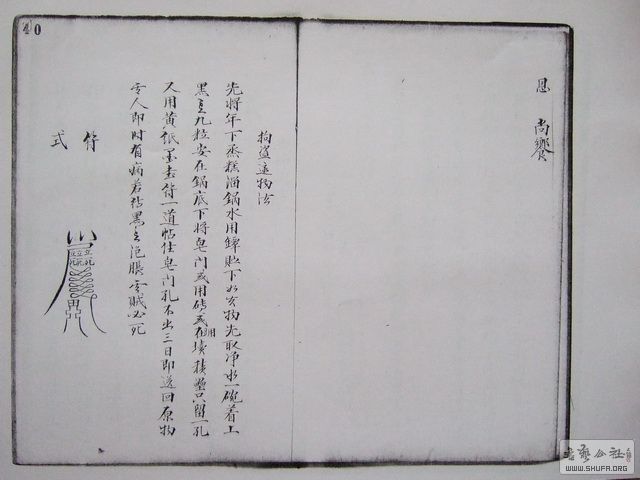 40
恩 尚饗
拘盗送物法
先将年下蒸糕鍋水用鐔貯下如失物先取净水一碗着上
黑豆九粒安在鍋底下将皂門或用磚或用壘只留一孔
又用黄紙墨書符一道帖住皂門孔不出三日即送回原物
令人即时有病若黑豆泡脹令賊必死
符式
書藝公社
WWW.SHUFA.ORG